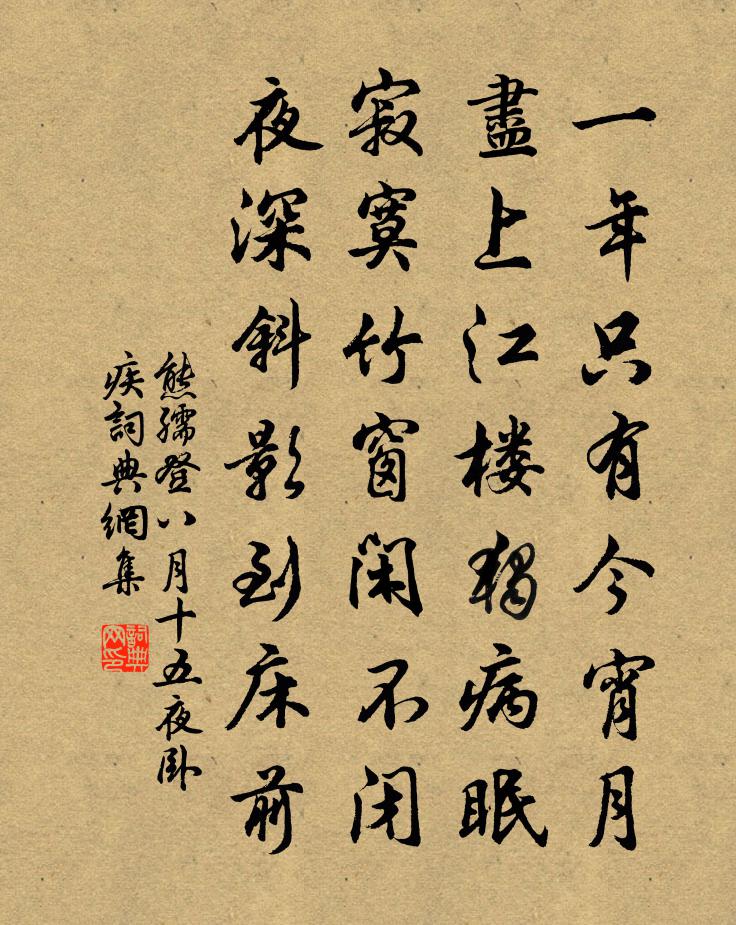 一年只有今宵月
盡上江楼獨病眠
寂寞竹窗閑不閉
夜深斜影到床前
熊孺登八月十五夜卧
疾詞典網集
詞典网印